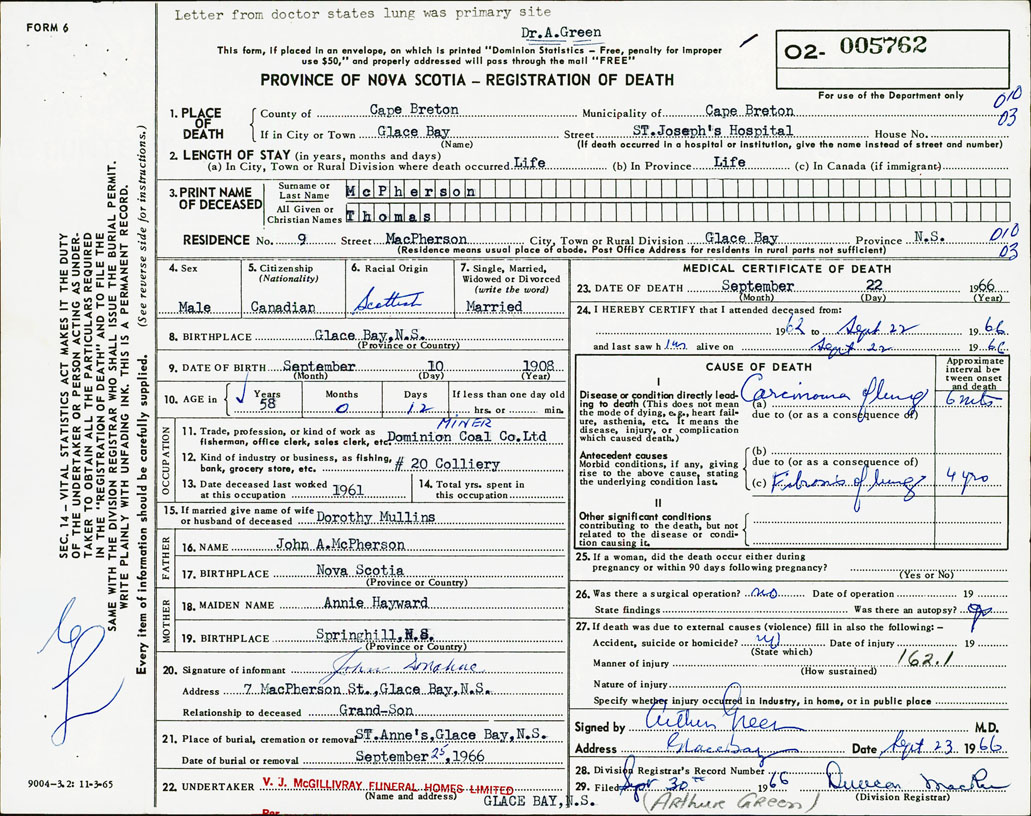 Letter from doctor states lung was primary site
FORM 6
Dr.A.Green
This form, if placed in an envelope, on which is printed "Dominion Statistics – Free, penalty for improper
use $50," and properly addressed will pass through the mail "FREE"
O2- 005762
PROVINCE OF NOVA SCOTIA – REGISTRATION OF DEATH
For use of the Department only
010
03
1. PLACE OF DEATH
County of Cape Breton Municipality of Cape Breton
If in City or Town Glace Bay Street ST.Joseph's Hospital House No.
(Name) (If death occurred in a hospital or institution, give the name instead of street and number)
2. LENGTH OF STAY (in years, months and days)
(a) In City, Town or Rural Division where death occurred Life (b) In Province Life (c) In Canada (if immigrant)
3. PRINT NAME OF DECEASED
Surname or Last Name McPherson
All Given or Christian Names Thomas
RESIDENCE No. 9 Street MacPherson City, Town or Rural Division Glace Bay Province N.S. 010
(Residence means usual place of abode. Post Office Address for residents in rural parts not sufficient) 03
4. Sex Male
5. Citizenship (Nationality) Canadian
6. Racial Origin Scottish
7. Single, Married, Widowed or Divorced (write the word) Married
8. BIRTHPLACE Glace Bay,N.S.
(Province or Country)
9. DATE OF BIRTH September 10 1908
(Month) (Day) (Year)
10. AGE in Years 58 Months 0 Days 12 If less than one day old hrs. or min.
OCCUPATION
MINER
11. Trade, profession, or kind of work as fisherman, office clerk, sales clerk, etc. Dominion Coal Co.Ltd
12. Kind of industry or business, as fishing, bank, grocery store, etc. # 20 Colliery
13. Date deceased last worked at this occupation 1961
14. Total yrs. spent in this occupation
15. If married give name of wife or husband of deceased Dorothy Mullins
FATHER
16. NAME John A.McPherson
17. BIRTHPLACE Nova Scotia
(Province or Country)
MOTHER
18. MAIDEN NAME Annie Hayward
19. BIRTHPLACE Springhill,N.S.
(Province or Country)
20. Signature of informant John Donahue
Address 7 MacPherson St.,Glace Bay,N.S.
Relationship to deceased Grand-Son
21. Place of burial, cremation or removal ST.Anne's,Glace Bay,N.S.
Date of burial or removal September 25,1966
22. UNDERTAKER V. J. McGILLIVRAY FUNERAL HOMES LIMITED
(Name and address) GLACE BAY,N.S.
Per
MEDICAL CERTIFICATE OF DEATH
23. DATE OF DEATH September 22 1966
(Month) (Day) (Year)
24. I HEREBY CERTIFY that I attended deceased from:
1962 to Sept 22 1966
and last saw him alive on Sept 22 1966
CAUSE OF DEATH
Approximate interval between onset and death
I
Disease or condition directly leading to death (This does not mean the mode of dying, e.g., heart failure, asthenia, etc. It means the disease, injury, or complication which caused death.)
(a) Carcinoma of lung 6 mts
due to (or as a consequence of)
Antecedent causes
Morbid conditions, if any, giving rise to the above cause, stating the underlying condition last.
(b)
due to (or as a consequence of)
(c) Fibrosis of lung 4 yrs
II
Other significant conditions
contributing to the death, but not related to the disease or condition causing it.
25. If a woman, did the death occur either during
pregnancy or within 90 days following pregnancy?
(Yes or No)
26. Was there a surgical operation? no Date of operation 19
State findings Was there an autopsy?
27. If death was due to external causes (violence) fill in also the following: –
Accident, suicide or homicide? Date of injury 19
(State which)
Manner of injury 162.1
(How sustained)
Nature of injury
Specify whether injury occurred in industry, in home, or in public place
Signed by Arthur Green M.D.
Address Glace Bay Date Sept 23 1966
28. Division Registrar's Record Number
29. Filed Sept 30th 1966 Duncan
(Division Registrar)
(ARTHUR GREEN)
SEC. 14 – VITAL STATISTICS ACT MAKES IT THE DUTY
OF THE UNDERTAKER OR PERSON ACTING AS UNDER-
TAKER TO OBTAIN ALL THE PARTICULARS REQUIRED
IN THE "REGISTRATION OF DEATH" AND TO FILE THE
SAME WITH THE DIVISION REGISTRAR WHO SHALL ISSUE THE BURIAL PERMIT.
WRITE PLAINLY WITH UNFADING INK. THIS IS A PERMANENT RECORD.
Every item of information should be carefully supplied. (See reverse side for instructions.)
9004-3.2: 11-3-65